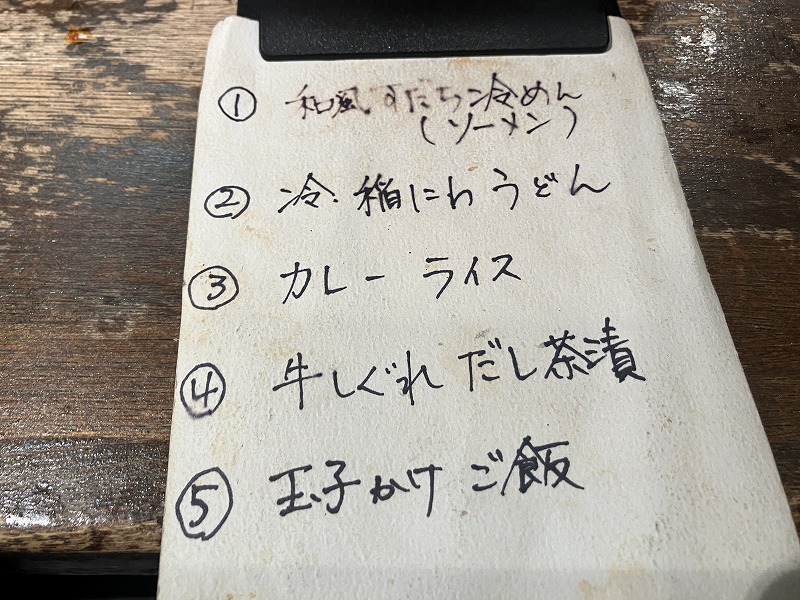 ① 和風すだち冷めん
(ソーメン)
② 冷.稲にわうどん
③ カレーライス
④ 牛しぐれだし茶漬
⑤ 玉子かけご飯